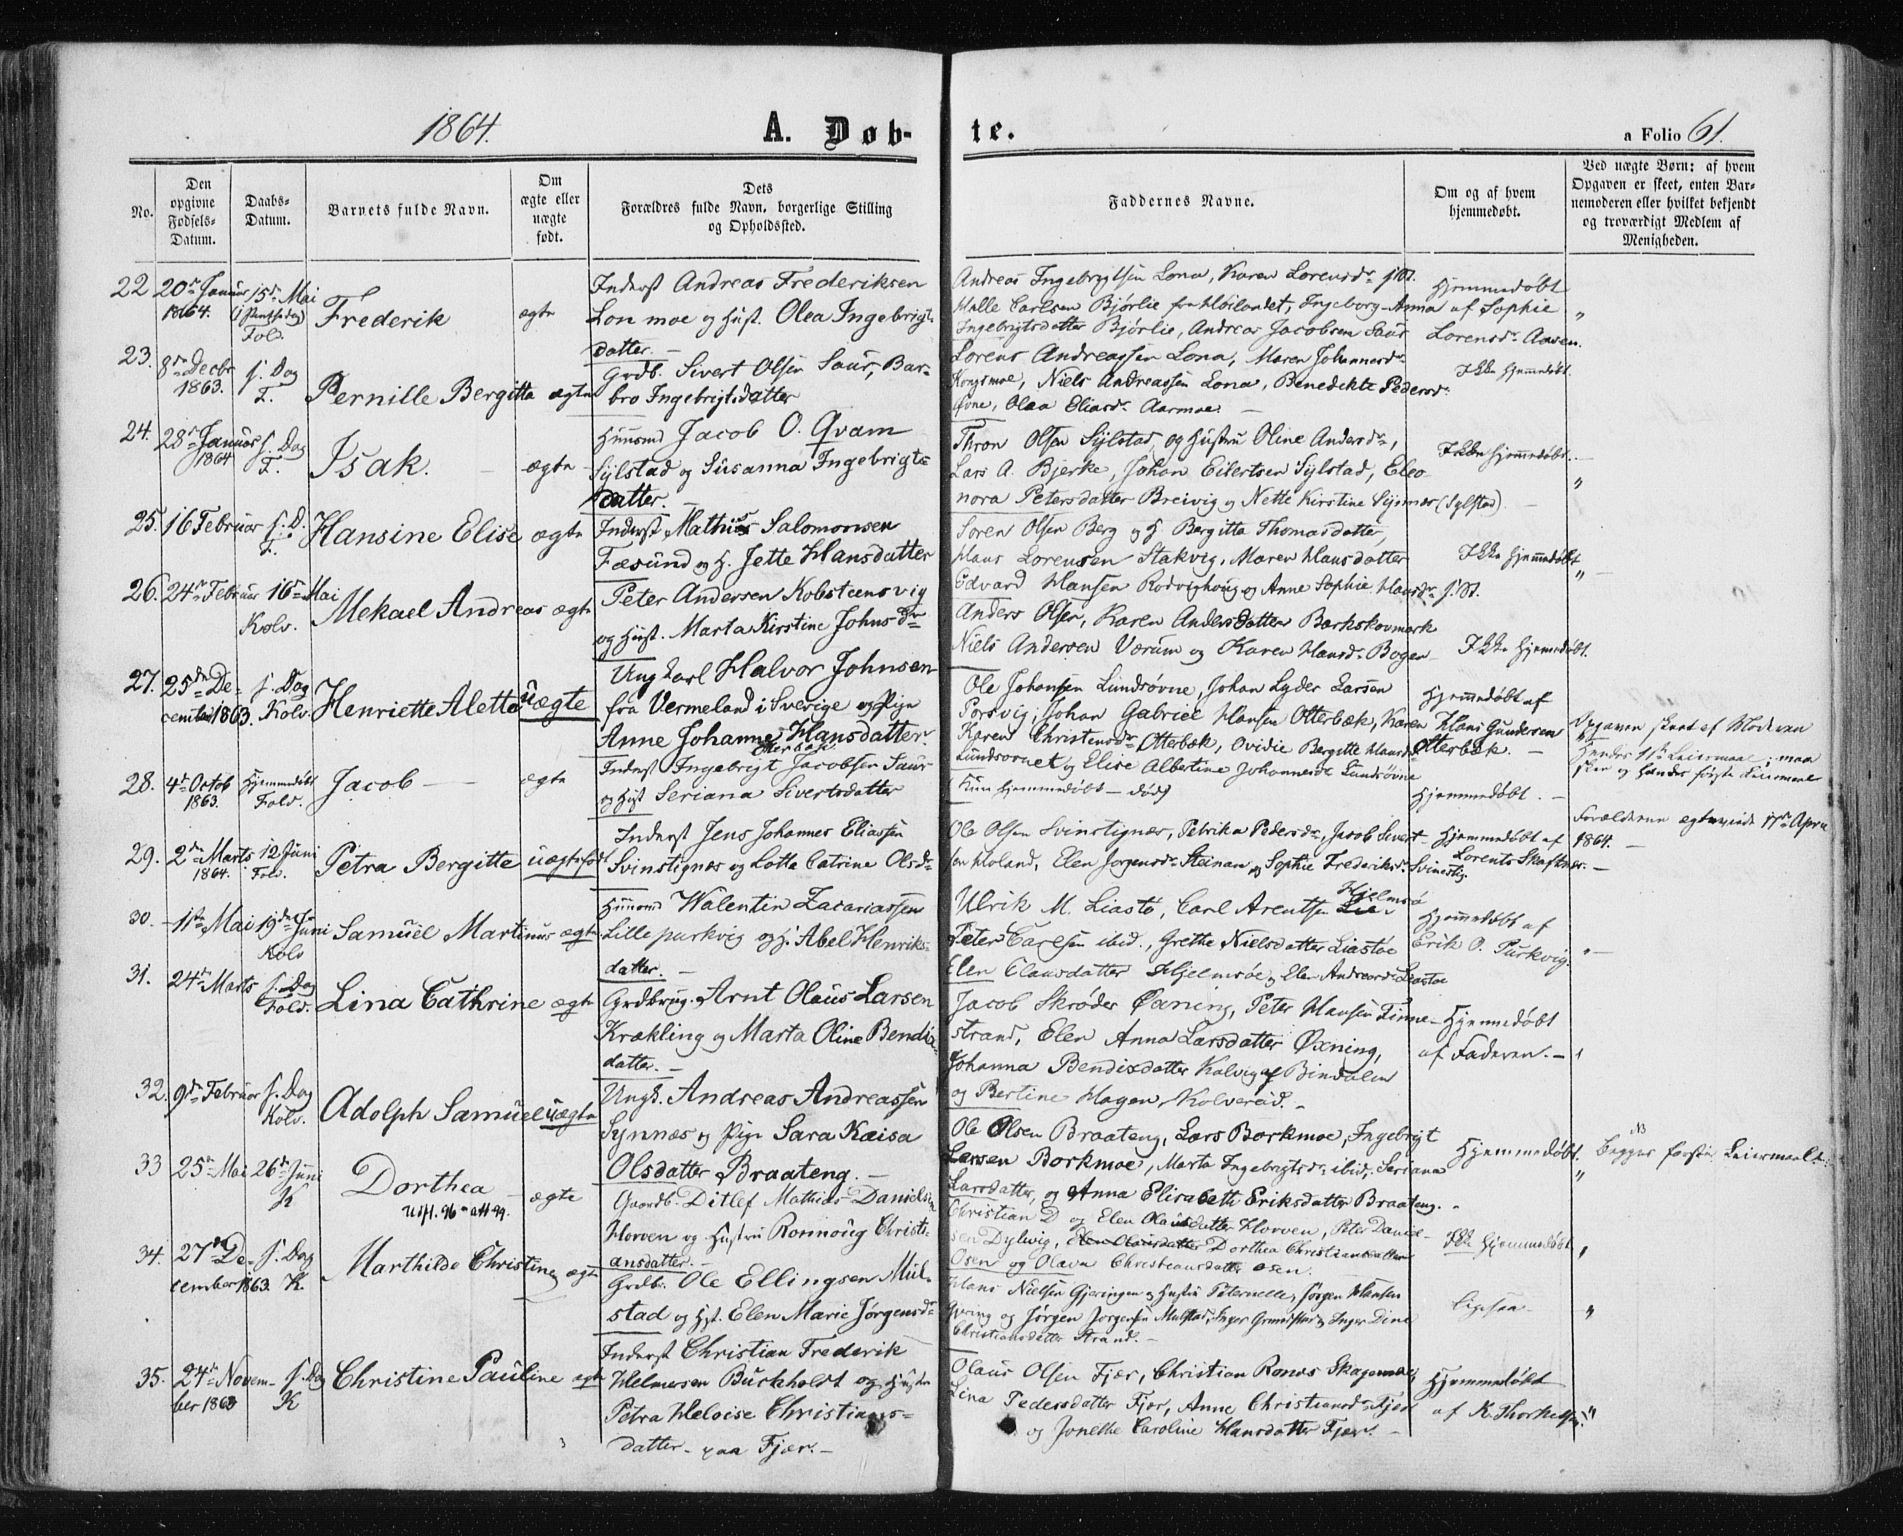 1864.
A. Døb-
te.
a Folio 61.
No.
Den
opgivne
Fødsels-
Datum.
Daabs-
Datum.
Barnets fulde Navn.
Om
ægte eller
uægte
født.
Dets
Forældres fulde Navn, borgerlige Stilling
og Opholdssted.
Faddernes Navne.
Om og af hvem
hjemmedøbt.
Ved uægte Børn: af hvem
Opgaven er skeet, enten Bar-
nemoderen eller hvilket bekjendt
og troværdigt Medlem af
Menigheden.
22 20de Januar 1864. 15de Mai Fold. Frederik ægte
Inderst Andreas Frederiksen
Lonmoe og Hust. Olea Ingebrigts-
datter.
Andreas Ingebrigtsen Lona, Karen Lorensdr
Halle Carlsen Bjørlie fra Abilandet, Ingeborg Anna
Ingebrigtsdatter Bjørlie, Andreas Jacobsen Saur
Hjemmedøbt
af Sophie
Lorensdr Aasen.
23. 8de Decbr 1863. s. Dag F. Pernille Bergitta ægte
Grdb. Sivert Olsen Saur, Bar-
bro Ingebrigtsdatter
Lorens Andreassen Lona, Maren Johannesdr
Kongsmoe, Niels Andreassen Lona, Benedikte Pedersdr
Øvne, Olaa Eliasdr Aarmoe.
Ikke hjemmedøbt.
24. 28de Januar 1864 s. Dag F. Isak. ægte
Huusmd Jacob O. Qvam
Sylstad og Susanna Ingebrigts-
datter.
Thron Olsen Sylstad og Hustru Oline Andersdr,
Lars A. Bjerke, Johan Eilertsen Sylstad, Eleo-
nora Petersdatter Breivig og Nette Kirstine (Sylstad)
Ikke hjemmedøbt.
25. 16 Februar s. D. F. Hansine Elise ægte
Inderst Mathias Salomonsen
Fæsund og H. Jette Hansdatter
Søren Olsen Berg og H. Bergitta Thomasdatter,
Hans Lorensen Stakvig, Maren Hansdatter
Edvard Hansen Rodvighoug og Anne Sophie Hansdr
Ikke hjemmedøbt
26. 24de Februar 16de Mai Kolv. Mekael Andreas ægte
Peter Andersen Kobsteensvig
og Hust. Marta Kirstine Johnsdr
Anders Olsen, Karen Andersdatter Barkskovmark
Niels Andersen Værum og Karen Hansdr Bogen
Ikke hjemmedøbt.
27. 25de De-
cember 1863. s. Dag Kolv. Henriette Alette uægte
Ung Karl Halvor Johnsen
fra Vermeland i Sverige og Pige
Anne Johanne Hansdatter
Otterbæk
Ole Johansen Lundsøvne, Johan Lyder Larsen
Porsvig, Johan Gabriel Hansen Otterbæk, Karen
Karen Christensdr Otterbæk, Ovidie Bergitte Hansdr
Lundsøvnet og Elise Albertine Johannesdr Lundsøvne
Hjemmedøbt af
Hans Gundersen
Otterbæk.
Opgaven skeet af Moderen
Hendes 1ste Leiermaal; maa-
skee og Hendes første Leiermaal
28. 4de Octob 1863. Hjemmedøbt Fold. Jacob ægte
Inderst Ingebrigt Jacobsen Saur
og Hust Seriana Sivertsdatter
(Kun hjemmedøbt - død)
Hjemmedøbt.
29. 2de Marts 1864. 12 Juni Fol. Petra Bergitte uægtefødt
Inderst Jens Johannes Eliassen
Svinstignæs og Lotta Catrine Olsdr
Ole Olsen Svinstignær, Petrika Pedersdr, Jacob Sivert-
sen Moland, Elen Jorgensdr Steinan og Sophie Frederiksdr Svinestig.
Hjemmedøbt af
Lorents Skaftnær.
Forældrene ægteviede 17de April
1864.
30. 11te Mai 19de Juni Kolv Samuel Martinus ægte
Huusmd Valentin Zacariassen
Lille purkvig og H. Abel Henriks-
datter.
Ulrik M. Liastø, Carl Arentsen Hjelmsø
Peter Carlsen ibid., Grethe Nielsdatter Liastøe
Elen Clausdatter Hjelmsøe, Elen Andreasdr Liastøe
Hjemmedøbt af
Erik P. Purkvig.
31. 24de Marts s. Dag Fold. Lina Cathrine ægte
Grdbrug. Arnt Olaus Larsen
Krækling og Marta Oline Bendix-
datter.
Jacob Skrøder Øxning, Peter Hansen Finne-
strand, Elen Anna Larsdatter Øxning,
Johanna Bendixdatter Kalvig af Bindalen
og Bertine Hagen, Kolvereid.
Hjemmedøbt
af Faderen.
32. 9de Februar s. Dag Kolv. Adolph Samuel uægte
Ungk. Andreas Andreassen
Synnæs og Pige Sara Kaisa
Olsdatter Braateng.
Ole Olsen Braateng, Lars Borkmoe, Ingebrigt
Larsen Borkmoe, Marta Ingebrigtsdr ibid., Seriana
Larsdatter, og Anna Elisabeth Eriksdatter Braateng.
Hjemmedøbt.
NB
Begges første Leiermaal
33 25de Mai 26de Juni K Dorthea ægte
Udfl. 96 att 99.
Gaardb. Ditlef Mathias Danielsen
Horven og Hustru Ronnoug Christi-
ansdatter.
Christian D og Elen Olausdatter Horven, Peter Daniel-
sen Dylwig, Elen Olausdatter Dorthea Christiansdatter
Osen og Olava Christiansdatter Osen.
Ikke hjemmedøbt
34. 27de De-
cember 1863. s. Dag K. Marthilde Christine ægte
Grdbr. Ole Ellingsen Mul-
stad og Hust. Elen Marie Jørgensdr
Hans Nielsen Gjeringen og Hustru Peternelle, Jørgen Hansen
Gyring og Jørgen Jorgensen Mulstad, Inger Grundstad og Inger Dine
Christiansdatter Strand.
Ligesaa
35. 24de Novem-
ber 1863 s. Dag K Christine Pauline ægte
Inderst Christian Frederik
Helmersen Burkholdt og Hustru
Petra Heloise Christians-
datter - paa Fjær.
Olaus Olsen Fjær, Christian Ronæs Skagenæs,
Lina Pedersdatter Fjær, Anne Christiansdr Fjær
og Jonette Caroline Hansdatter Fjær.
Hjemmedøbt
af K. Thorkelsen